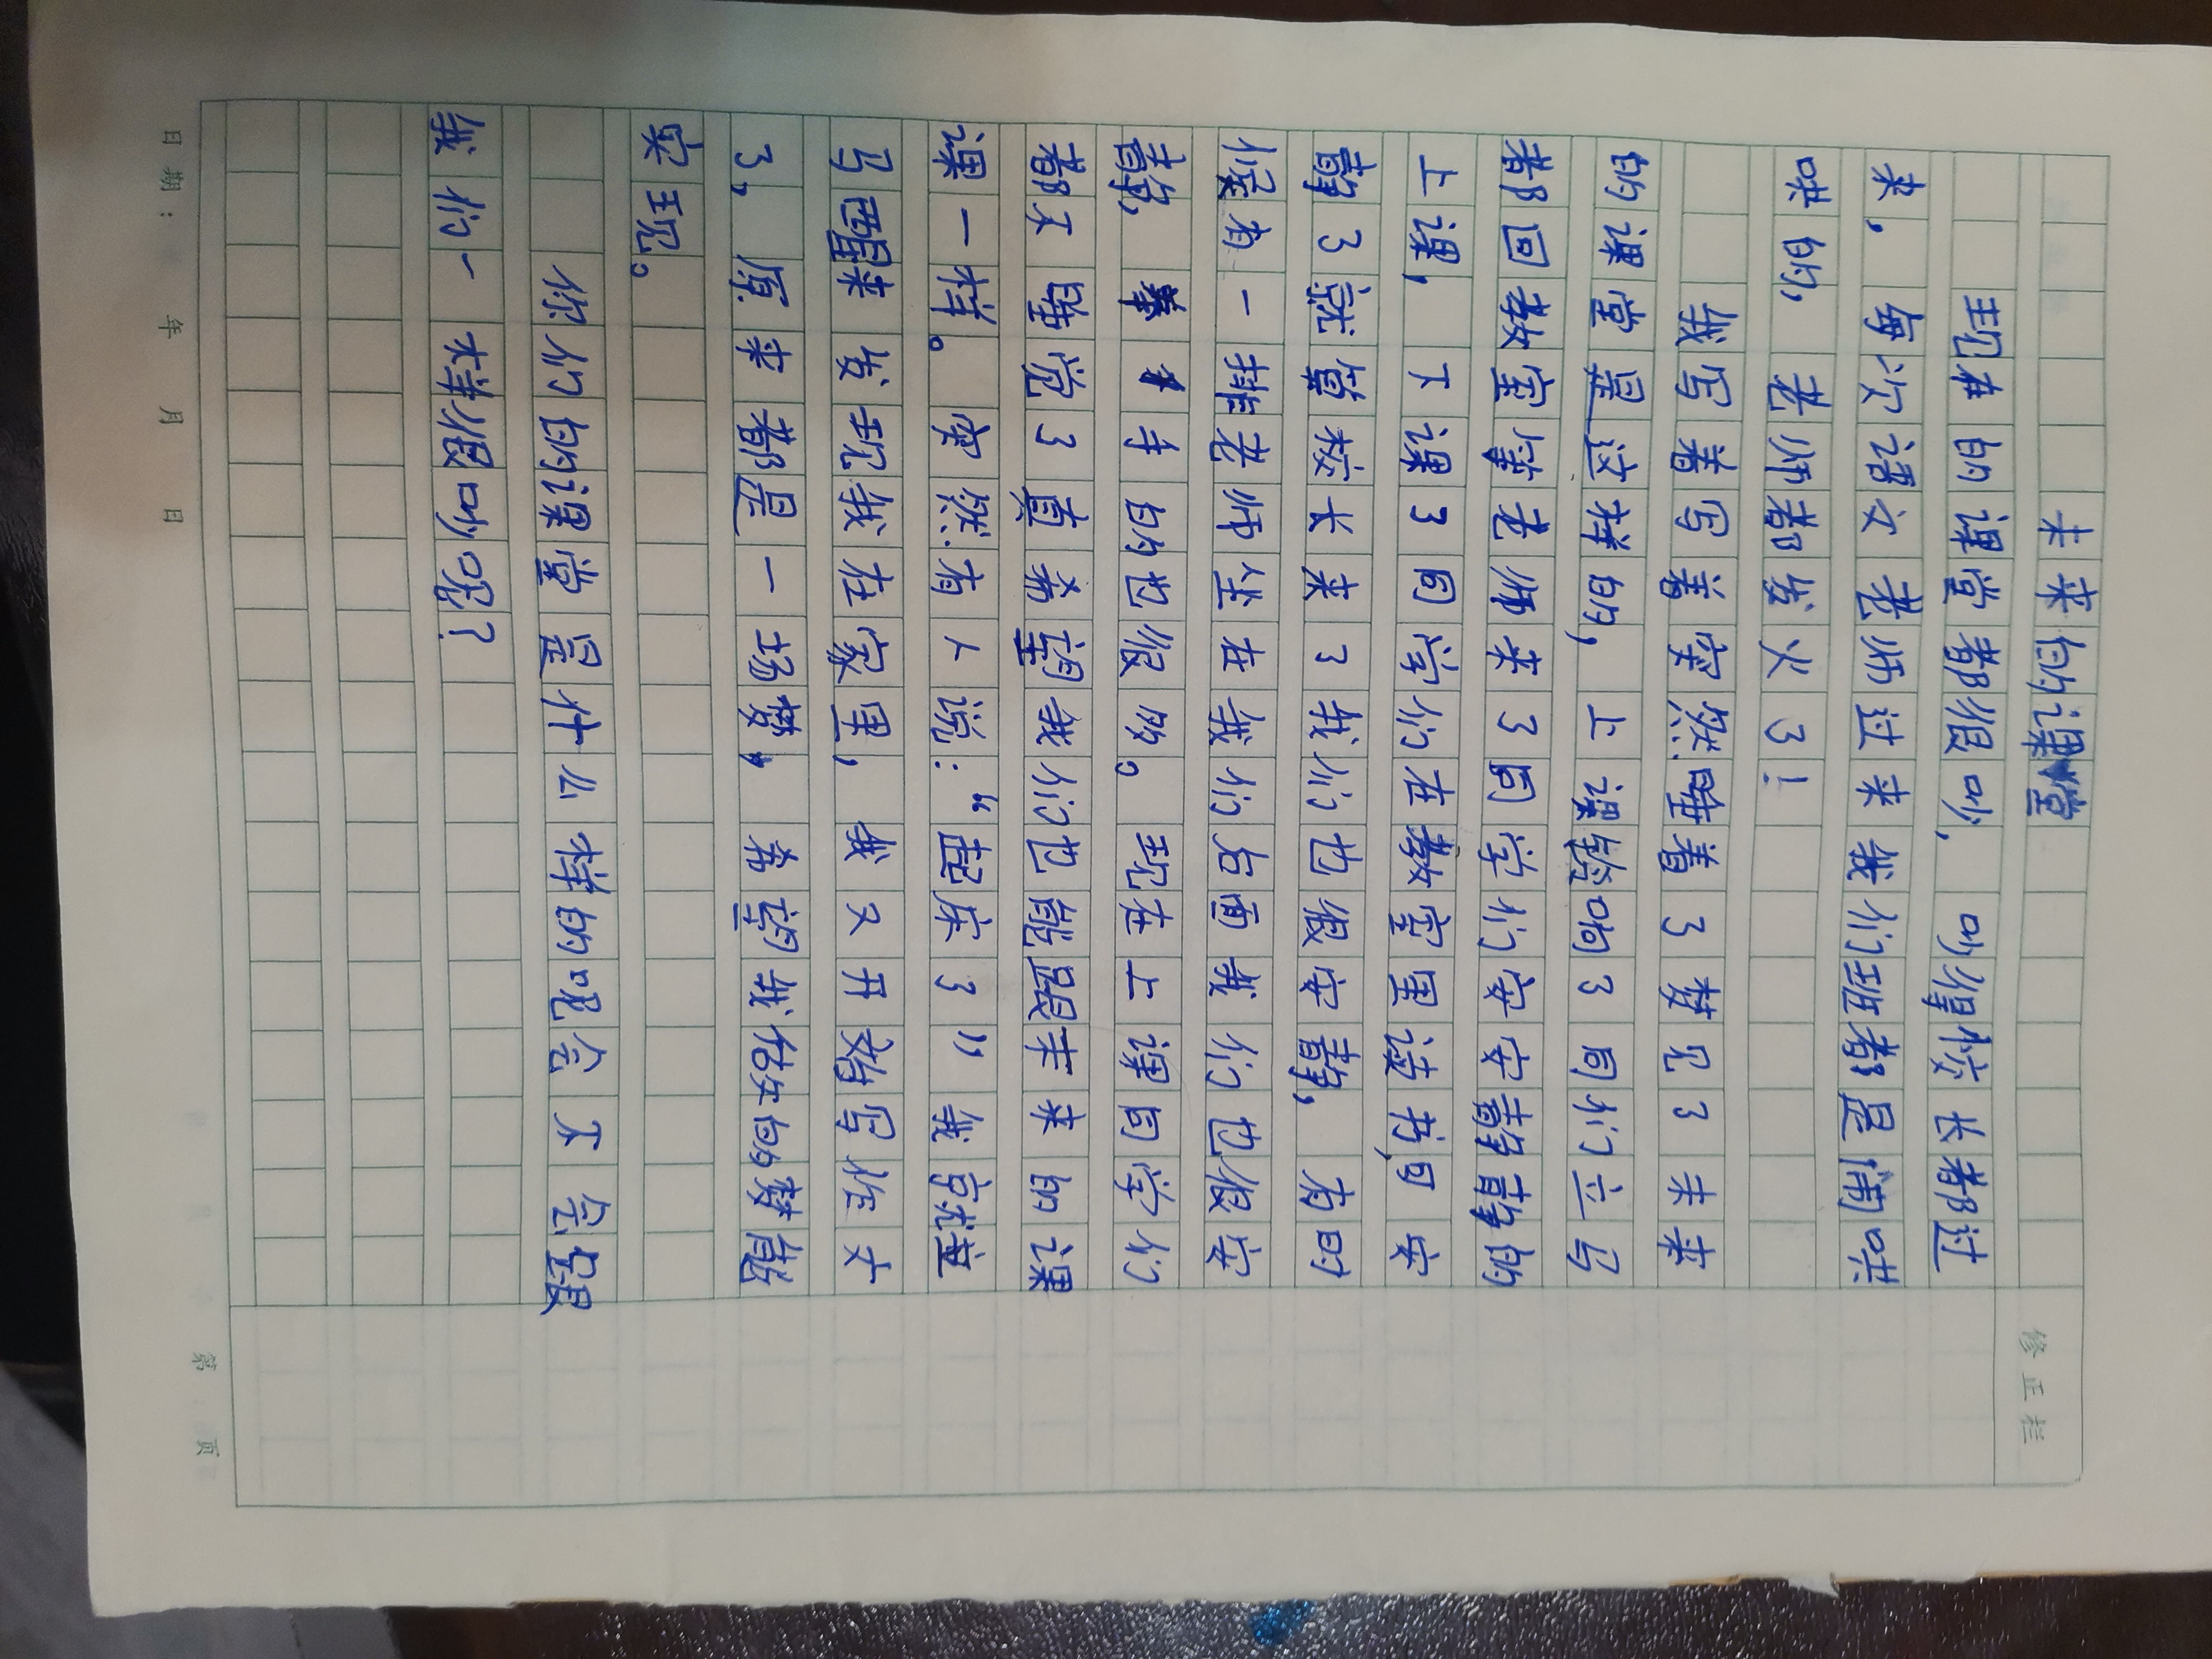 未来的课堂
现在的课堂都很吵，吵得校长都过
来，每次语文老师过来我们班都是闹哄
哄的，老师都发火了！
我写着写着突然睡着了梦见了未来
的课堂是这样的，上课铃响了同们立马
都回教室等老师来了同学们安安静静的
上课，下课了同学们在教室里读书，可安
静了就算校长来了我们也很安静，有时
候有一排老师坐在我们后面我们也很安
静，举手的也很多。现在上课同学们
都不睡觉了真希望我们也能跟未来的课
课一样。突然有人说：“起床了”我就立
马醒来发现我在家里，我又开始写作文
了，原来都是一场梦，希望我住的梦能
实现。
你们的课堂是什么样的呢会不会跟
我们一样很吵呢？
修正栏
日期： 年 月 日
第 页